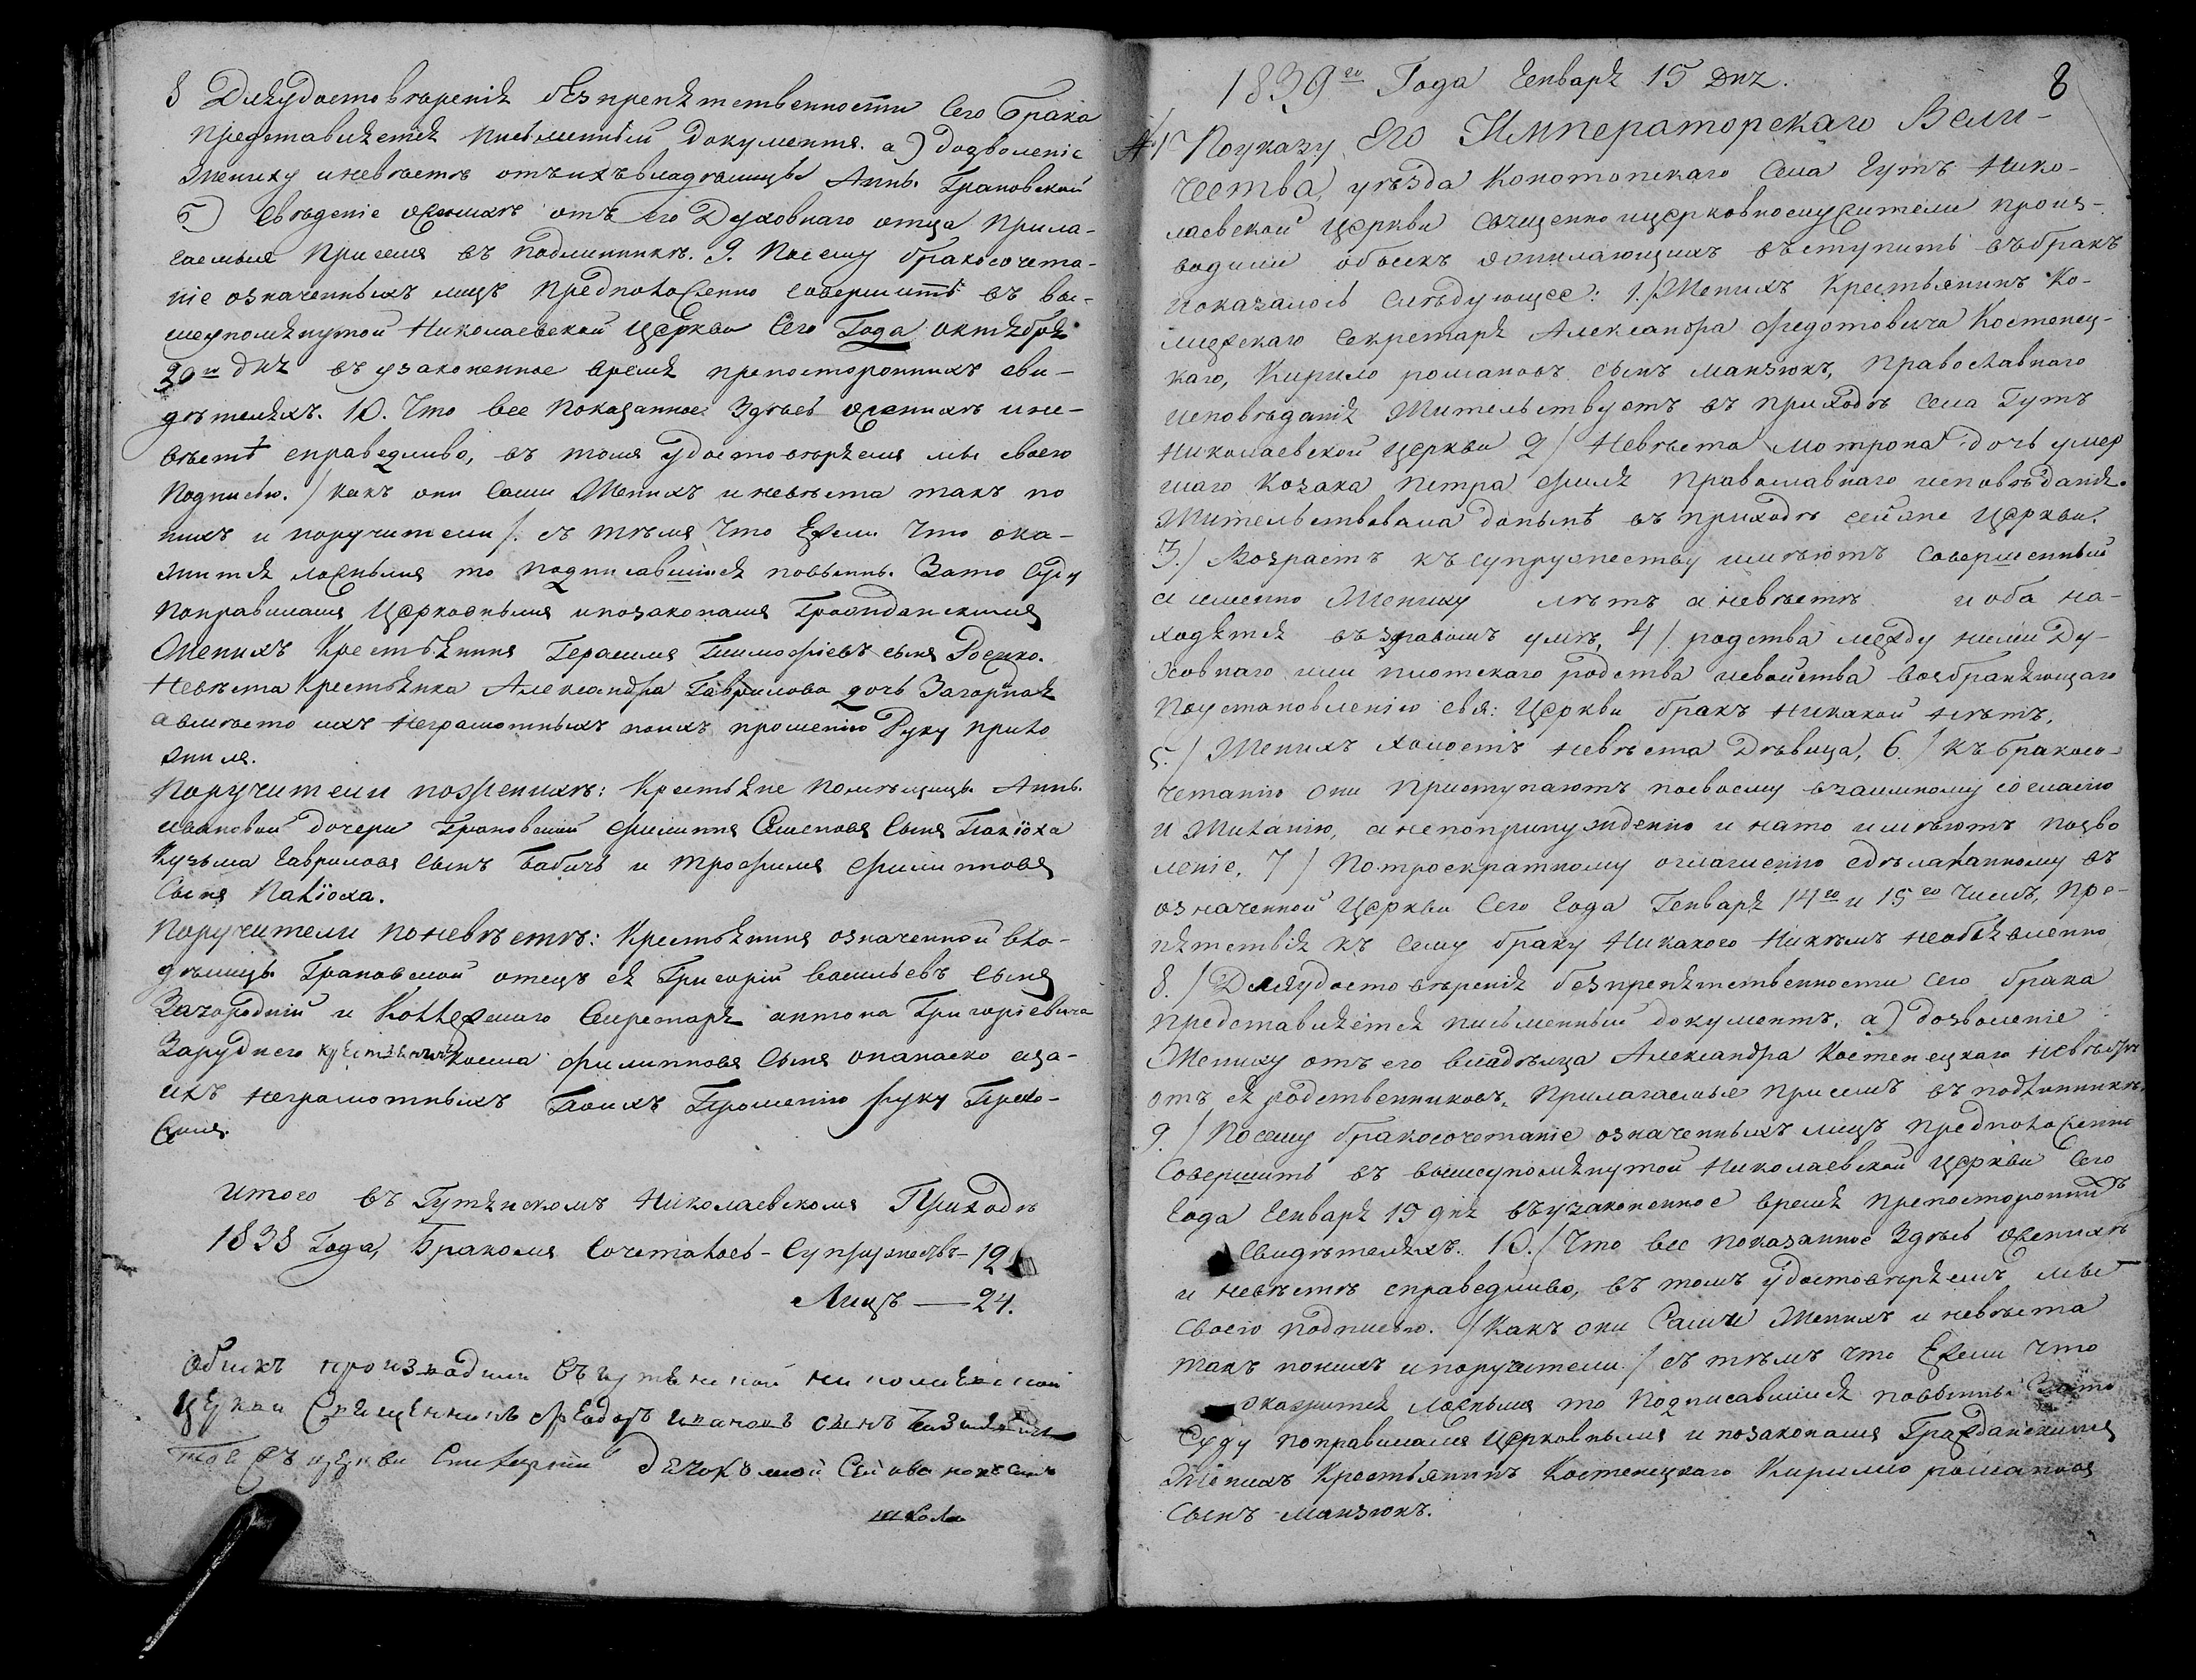 8 Дляудостоверенія безпрепятственности сего брака
представляется письменный документъ. а) дозволеніе
Жениху иневѣстѣ отъихъвладѣлицы Анны Грановской
б) Свѣденіе оженихѣ отъ его Духовнаго отца прила-
гаемыя присемъ въ подлинникѣ. 9. Посему бракосочета-
ніе означенныхъ лицъ предположенно совершить въ вы-
шеупомянутой Николаевской Церкви Сего Года октября
30го дня въ узаконенное время припостороннихъ сви-
дѣтеляхъ. 10. Что все показанное здѣсь оженихѣ ине-
вѣстѣ справедливо, въ томъ удостовѣряемъ мы своею
подписью. / какъ они сами Женихъ иневѣста такъ по
нихъ и поручители /. съ тѣмъ что Ежели что ока-
жится ложнымъ то подписавшіися повинны Зато Суду
поправиламъ Церковнымъ ипозаконамъ Гражданскимъ
Женихъ Крестьянинъ Герасимъ Тимофіевъ сынъ Роенко.
Невѣста Крестьянка Александра Гаврилова дочь Загорная
авместо ихъ неграмотныхъ поихъ прошенію Руку прило
жилъ.
Поручители поженихѣ: Крестьяне помѣщицы Анны
ивановой дочери Грановской филиппъ Семеновъ Сынъ Палїоха
Кузьма Гавриловъ Сынъ Бабичъ и Трофимъ филипповъ
Сынъ Палїоха.
Поручители поневѣстѣ: Крестьянинъ означенной вла-
дѣлицы Грановской отецъ ея Григорій Васильевъ Сынъ
Загородній и Коллежскаго Секретаря антона Григоріевича
Заруднего крестьянинъ филипповъ Сынъ опанаско
ихъ неграмотныхъ Поихъ Прошенію руку Прило-
жилъ.
итого въ Гутянскомъ Николаевскомъ Приходѣ
1838 Года, Бракомъ Сочеталось - Супружествъ - 12
Лицъ — 24.
обыскъ производили въгутянской николаевской
церкви Священникъ феодоръ ивановъ сынъ
той жъ церкви
1839го Года Генваря 15 дня. 8
№1 Поуказу Его Императорскаго Вели-
чества, уѣзда Конотопскаго Села Гутъ Нико-
лаевской Церкви Священноицерковнослужители произ-
водили обыскъ ожилающихъ вступить вбракъ
ипоказалось слѣдующее: 1./ Женихъ Крестьянинъ Ко-
лежскаго Секретаря Александра федотовича Костенец-
каго, Кирило романовъ сынъ манзюкъ, православнаго
исповѣданія Жительствуетъ въ приходѣ Села Гутъ
Николаевской Церкви 2/ Невѣста мотрона дочь умер
шаго Козака Петра православнаго исповѣданія.
Жительствовала донынѣ въ приходѣ сейже Церкви.
3./ Возрастъ къ супружеству имѣютъ Совершенный
а именно Жениху лѣтъ а невѣстѣ и оба на-
ходятся въ здравомъ умѣ, 4/. родства между ними Ду-
ховнаго или плотскаго родства исвойства возбраняющаго
Поустановленію свя: Церкви бракъ никакой нѣтъ,
5./ Женихъ холостъ невѣста Дѣвица, 6./ къ бракосо-
четанію они приступаютъ посвоему взаимному согласію
и Желанію, а непопринужденно и нато имѣютъ позво
леніе, 7/ Потроекратному оглашенію сдѣланному въ
означенной Церкви Сего Года Генваря 14го и 15го Числъ, пре-
пятствія къ сему браку никакого никѣмъ необъявленно
8./ Дляудостовѣренія безпрепятственности сего брака
представляется письменный документъ, а) дозволеніе
Жениху отъ его владѣльца Александра Костенецкаго невѣстѣ
отъ ея родственниковъ. прилагаемые присемъ въ подлинникѣ
9./ посему бракосочетаніе означенныхъ лицъ предположенно
Совершить въ вышеупомянутой Николаевской Церкви Сего
Года Генваря 19 дня въузаконенное время припостороннихъ
Свидѣтеляхъ. 10./ Что все показанное здѣсь оженихѣ
и невѣстѣ справедливо, въ томъ удостовѣряемъ мы
своею подписью. / Какъ они Сами Женихъ и невѣста
такъ понихъ ипоручители / съ тѣмъ что Ежели что
окажится ложнымъ то подписавшіися повинны Зато
Суду поправиламъ Церковнымъ и позаконамъ Гражданскимъ
Женихъ Крестьянинъ Костенецкаго Кирилло романовъ
Сынъ манзюкъ.